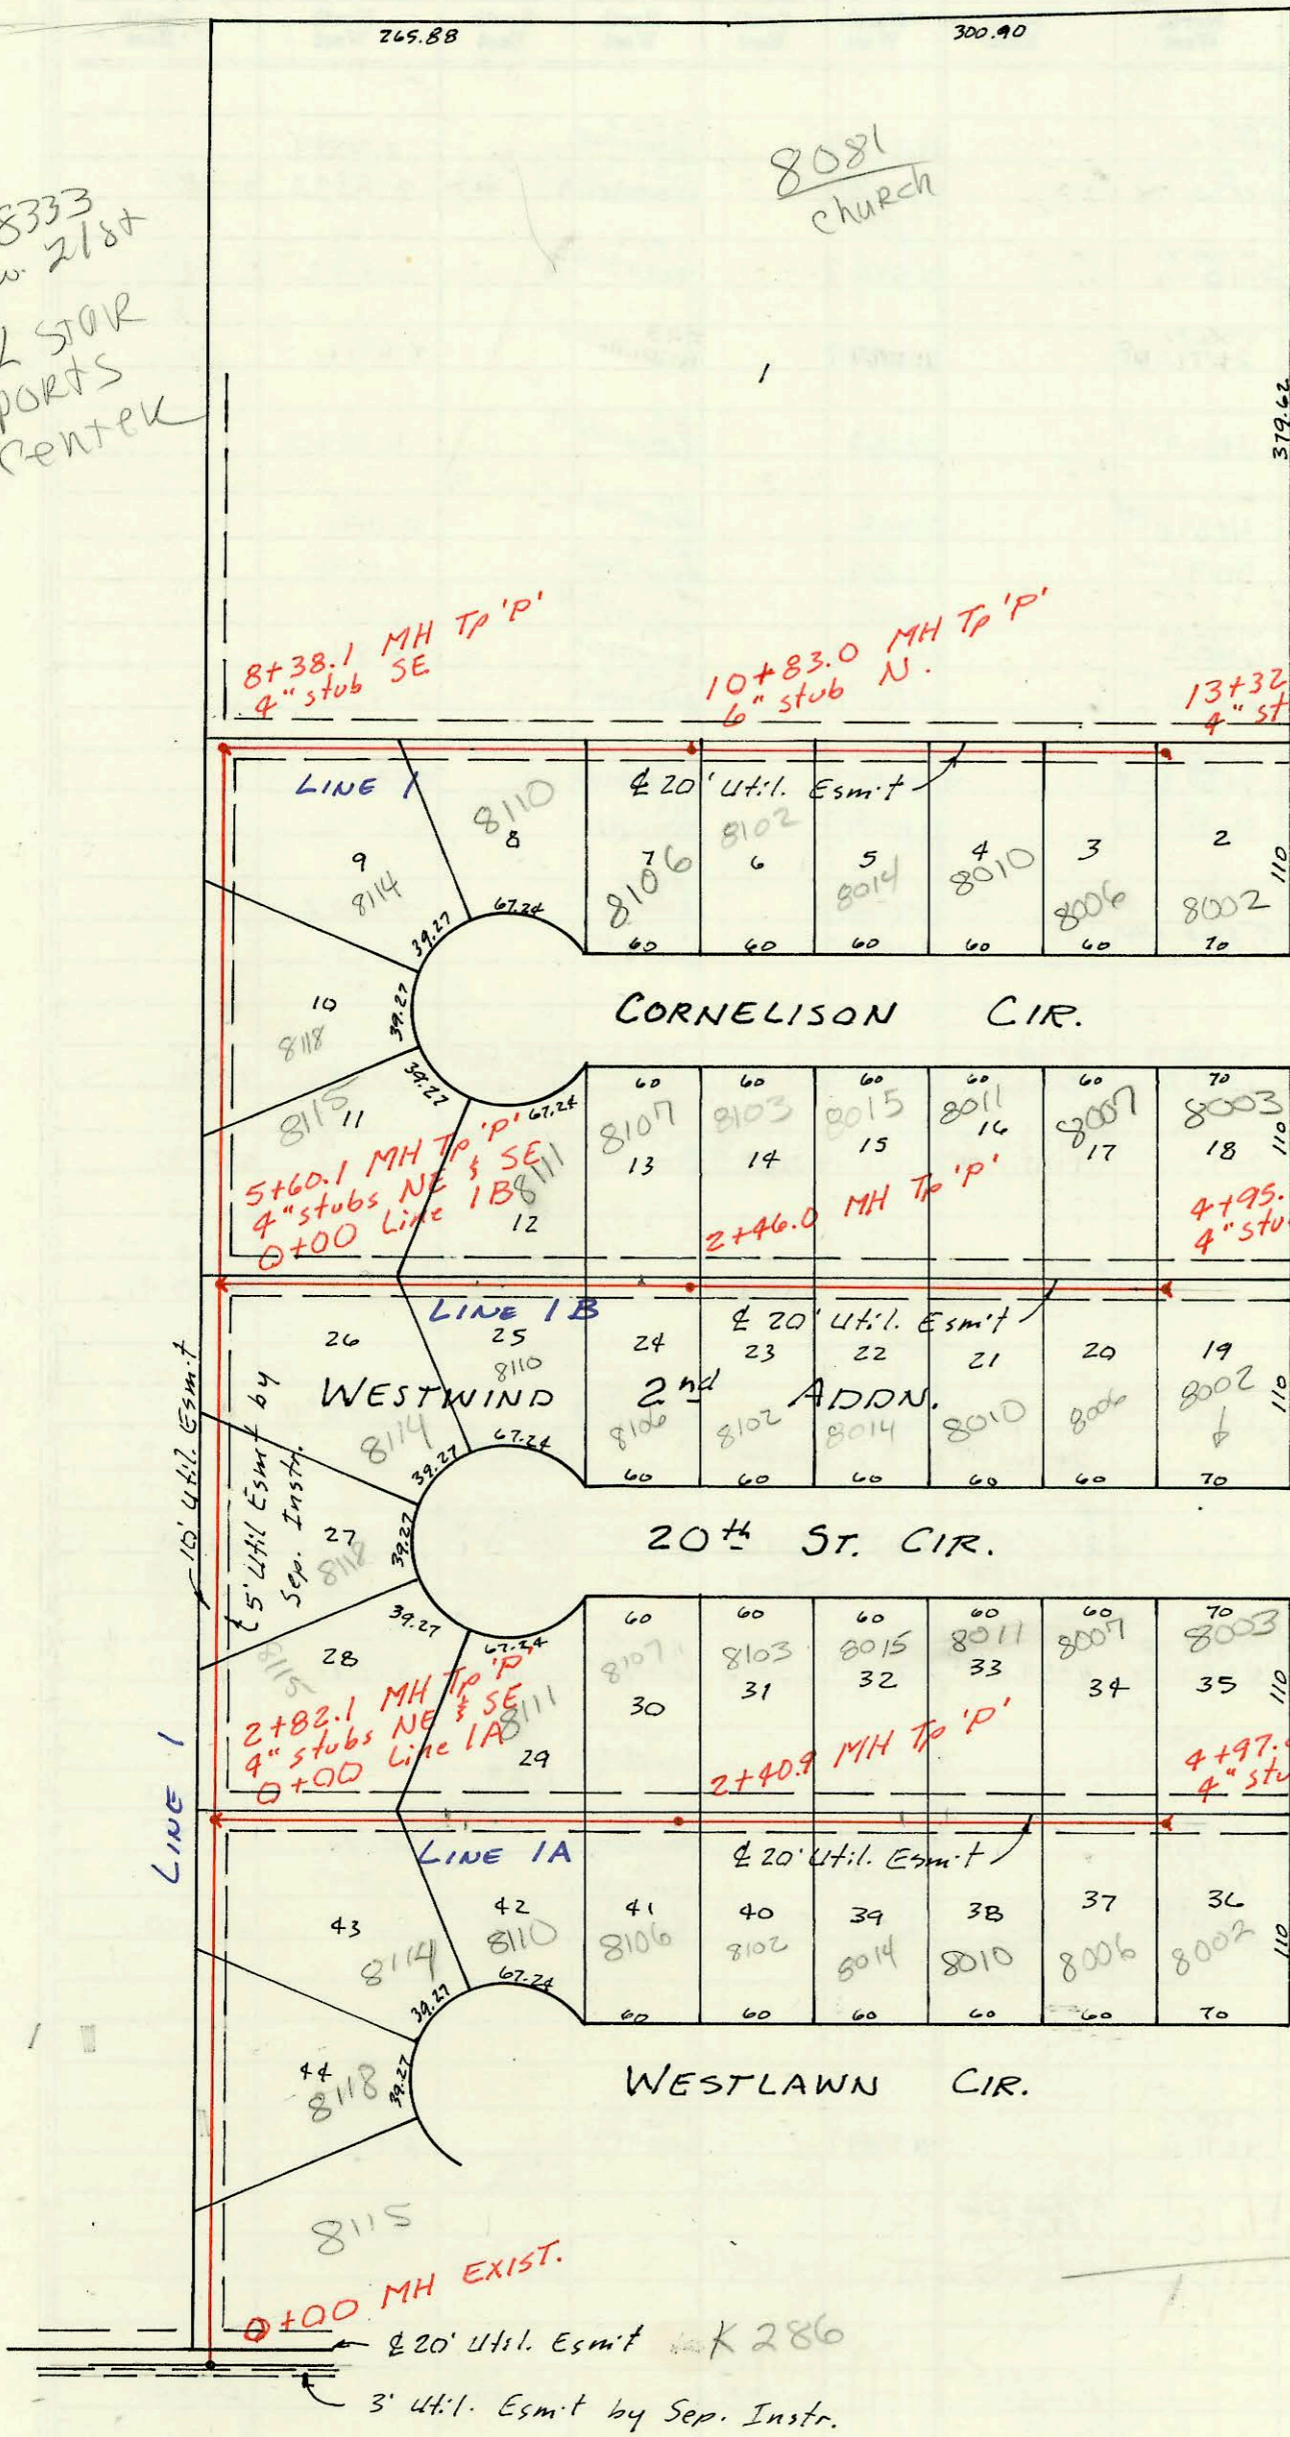 265.88
300.90
8081
church
8333
w. 21st
STAR
PORTS
Center
1
379.62
8+38.1 MH Tp 'P'
4" stub SE
10+83.0 MH Tp 'P'
6" stub N.
13+32
4" st
LINE 1
℄ 20' Util. Esm't
8110
8
9
8114
7
8106
8102
6
5
8014
4
8010
3
8006
2
8002
110
39.27
67.24
60
60
60
60
60
70
10
8118
39.27
CORNELISON CIR.
39.27
67.24
8115
11
60
60
60
60
60
70
8107
13
8103
14
8015
15
8011
16
8007
17
8003
18
110
5+60.1 MH Tp 'P'
4" stubs NE & SE
0+00 Line 1B
8111
12
2+46.0 MH Tp 'P'
4+95.
4" stu
LINE 1B
℄ 20' Util. Esm't
26
25
8110
24
23
22
21
20
19
8002
110
WESTWIND 2nd ADDN.
8114
8106
8102
8014
8010
8006
39.27
67.24
60
60
60
60
60
70
10' Util. Esm't
5' Util Esm't by
Sep. Instr.
27
8118
39.27
20th ST. CIR.
39.27
67.24
28
8115
60
60
60
60
60
70
8107
30
8103
31
8015
32
8011
33
8007
34
8003
35
110
2+82.1 MH Tp 'P'
4" stubs NE & SE
0+00 Line 1A
8111
29
2+40.9 MH Tp 'P'
4+97.
4" stu
LINE 1
LINE 1A
℄ 20' Util. Esm't
43
8114
42
8110
41
8106
40
8102
39
8014
38
8010
37
8006
36
8002
110
39.27
67.24
60
60
60
60
60
70
44
8118
39.27
WESTLAWN CIR.
8115
0+00 MH EXIST.
℄ 20' Util. Esm't
K 286
3' Util. Esm't by Sep. Instr.